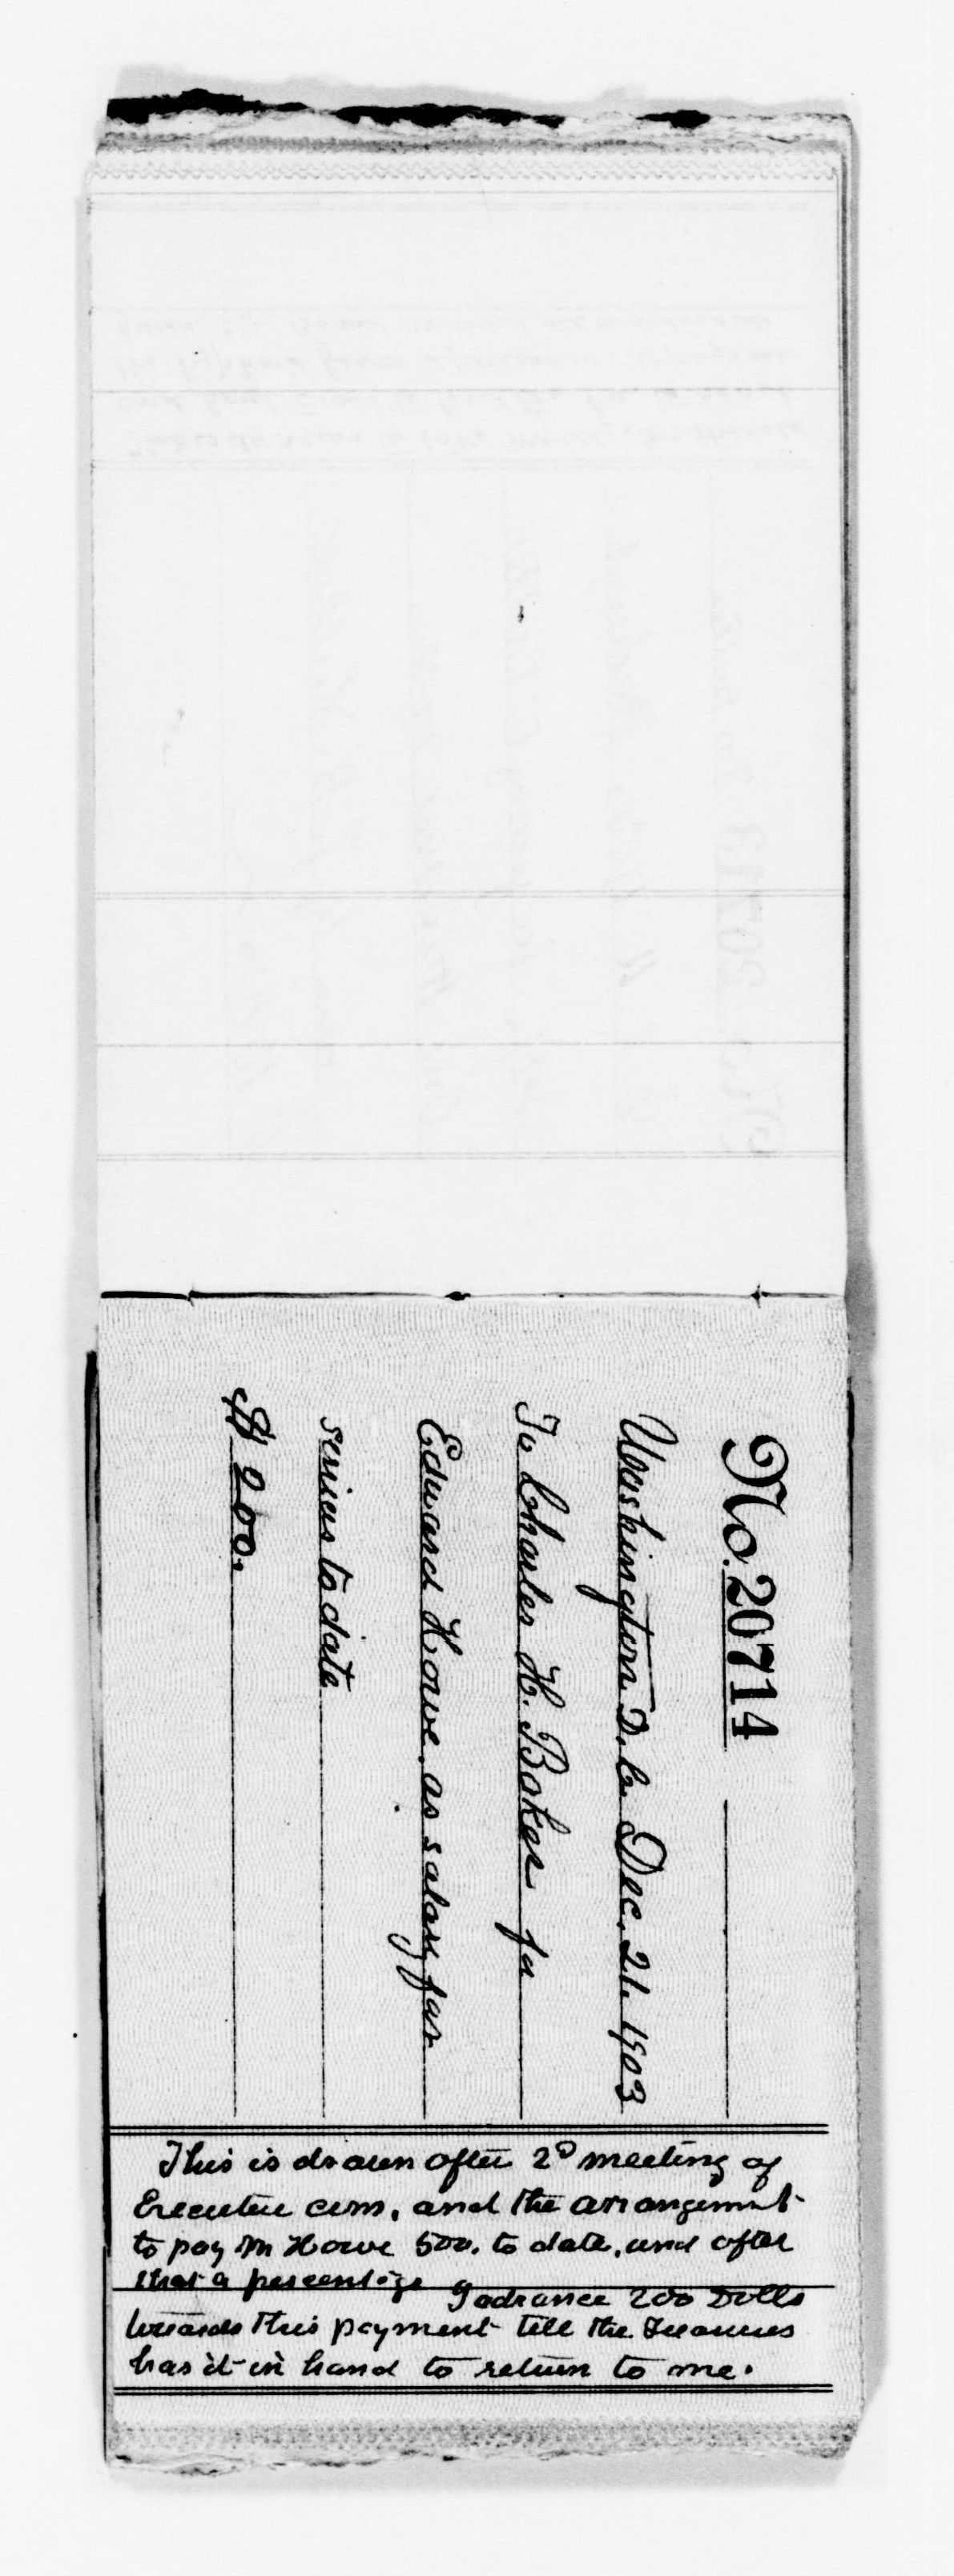 No. 20714
Washington D.C. Dec. 21. 1903
To Charles H. Baker for
Edward Howe, as salary for
services to date
$ 200.
This is drawn after 2D meeting of
Executive com, and the arrangement
to pay Mr Howe 500. to date, and after
that a percentage
I advance 200 Dolls
towards this payment till the Treasurer
has it in hand to return to me.